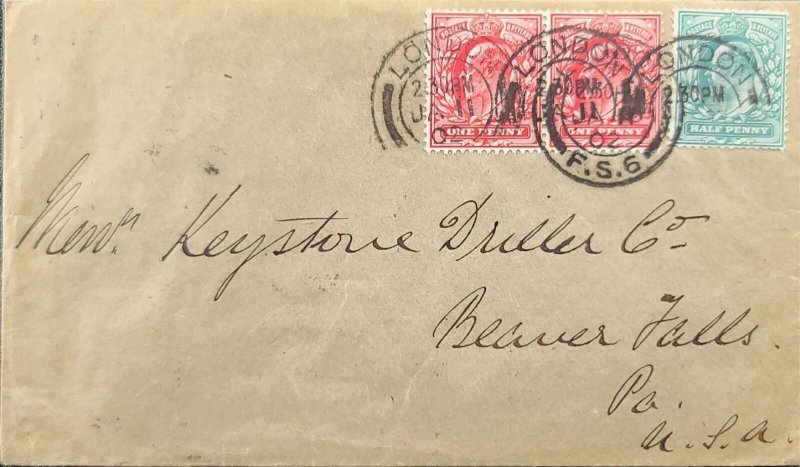 LONDON LONDON LONDON
2.30PM 2.30PM 2.30PM
JA 11 JA 11
02 02
F.S.6
POSTAGE REVENUE
ONE PENNY ONE PENNY HALF PENNY
Messrs Keystone Driller Co
Beaver Falls.
Pa.
U.S.A.